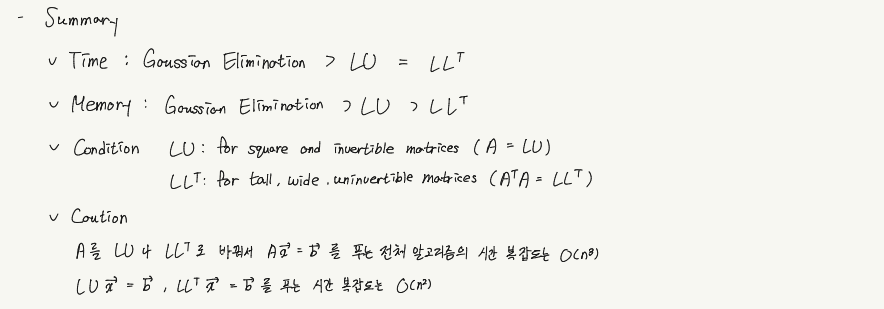 - Summary
v Time : Gaussian Elimination > LU = LLᵀ
v Memory : Gaussian Elimination > LU > LLᵀ
v Condition LU : for square and invertible matrices ( A = LU )
LLᵀ: for tall, wide, uninvertible matrices ( AᵀA = LLᵀ )
v Caution
A를 LU나 LLᵀ로 바꿔서 Ax⃗ = b⃗ 를 푸는 전체 알고리즘의 시간 복잡도는 O(n³)
LUx⃗ = b⃗ , LLᵀx⃗ = b⃗ 를 푸는 시간 복잡도는 O(n²)